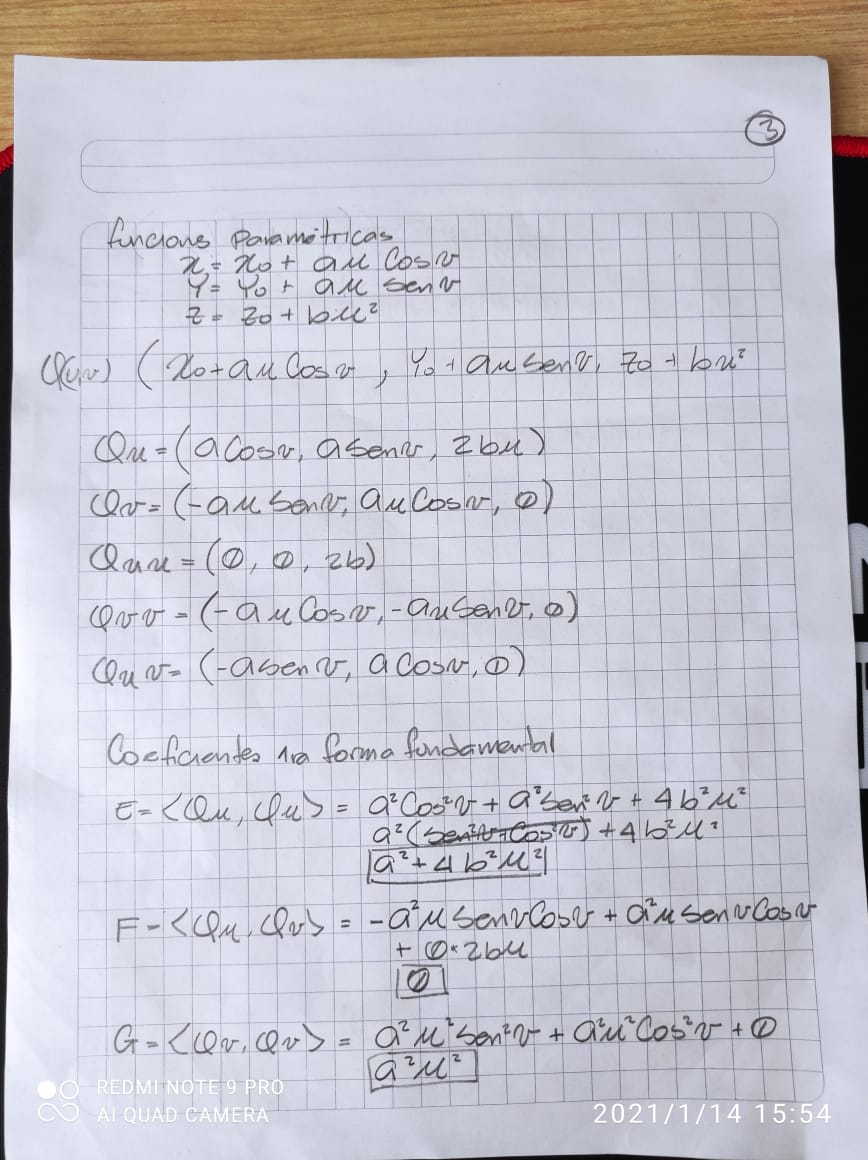 3
funcions Paramétricas
x = x₀ + au Cos v
Y = Y₀ + au sen v
z = z₀ + bu²
φ(u,v) ( x₀ + au Cos v , Y₀ + au sen v, z₀ + bu²
φu = (a Cos v, a sen v, 2bu)
φv = (-au sen v, au Cos v, 0)
φuu = (0, 0, 2b)
φvv = (-au Cos v, -au sen v, 0)
φuv = (-a sen v, a Cos v, 0)
Coeficientes 1ra forma fundamental
E = <φu, φu> = a²Cos²v + a²sen²v + 4b²u²
a²(sen²v+Cos²v) + 4b²u²
a² + 4b²u²
F = <φu, φv> = -a²u sen v Cos v + a²u sen v Cos v
+ 0·2bu
0
G = <φv, φv> = a²u²sen²v + a²u²Cos²v + 0
a²u²
REDMI NOTE 9 PRO
AI QUAD CAMERA
2021/1/14 15:54